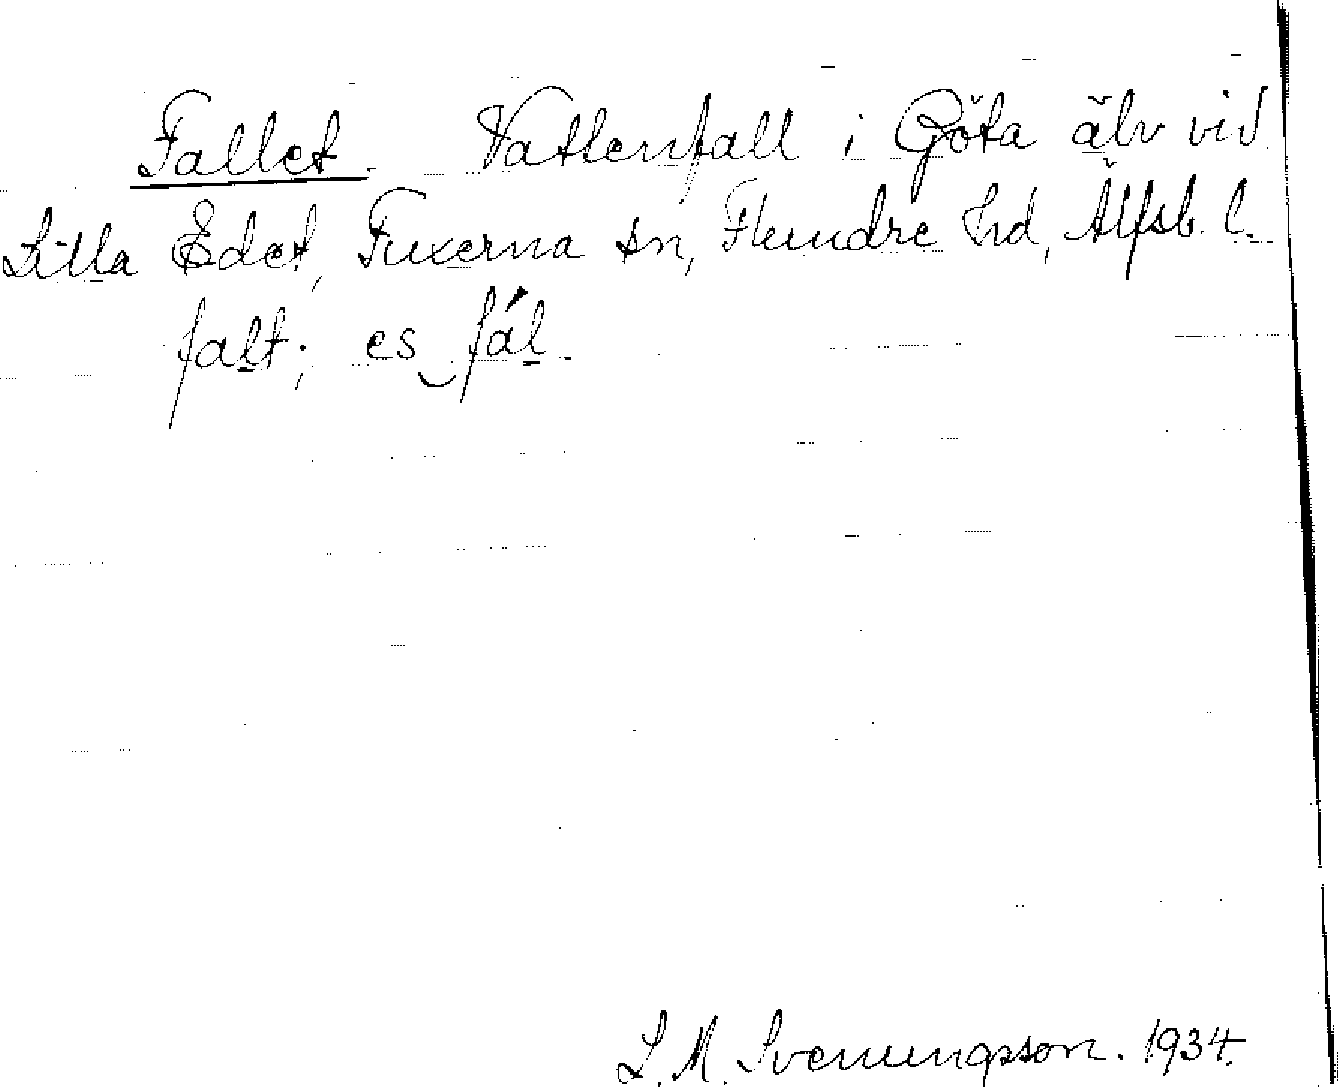 Fallet. Vattenfall i Göta älv vid
Lilla Edet, Fuxerna sn, Flundre hd, Älfsb. l.
falt; es fàl.
L. M. Svenungsson. 1934.